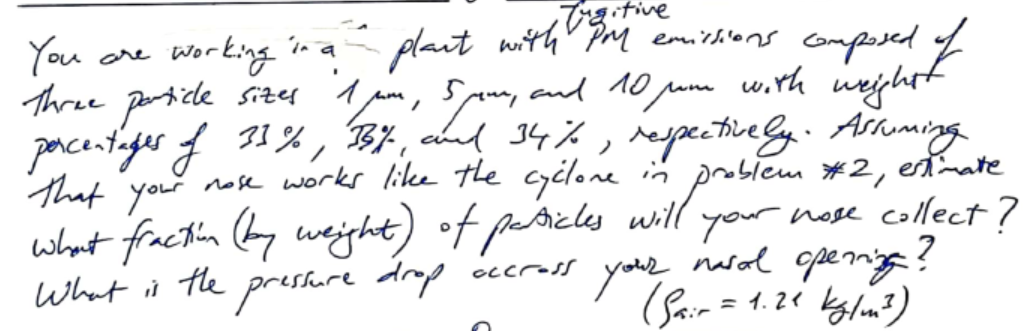 You are working in a plant with fugitive PM emissions composed of
three particle sizes 1 μm, 5 μm, and 10 μm with weight
percentages of 33%, 33%, and 34%, respectively. Assuming
that your nose works like the cyclone in problem #2, estimate
what fraction (by weight) of particles will your nose collect?
What is the pressure drop accross your nasal opening?
(ρair = 1.21 kg/m³)